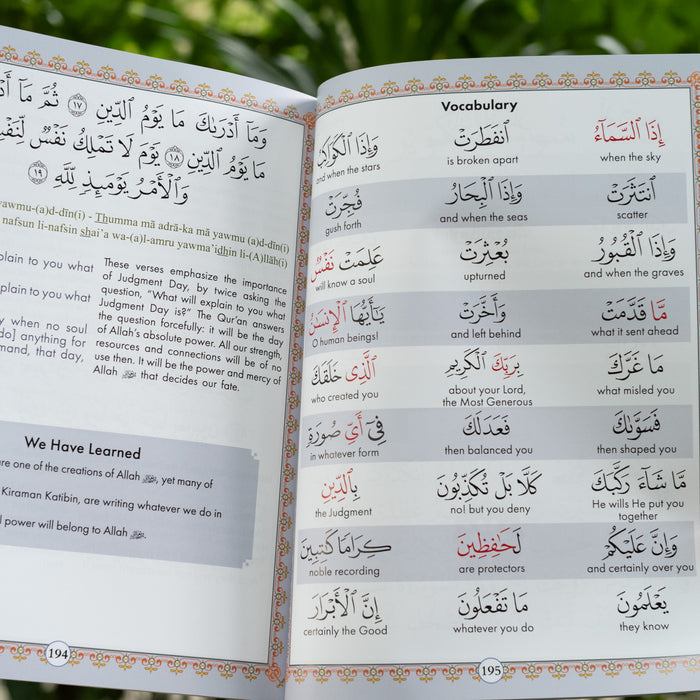 وَمَآ أَدْرَىٰكَ مَا يَوْمُ ٱلدِّينِ ١٧ ثُمَّ مَآ
مَا يَوْمُ ٱلدِّينِ ١٨ يَوْمَ لَا تَمْلِكُ نَفْسٌ لِّنَفْسٍ
وَٱلْأَمْرُ يَوْمَئِذٍ لِّلَّهِ ١٩
yawmu-(a)d-dīn(i) - Thumma mā adrā-ka mā yawmu (a)d-dīn(i)
nafsun li-nafsin shai’a wa-(a)l-amru yawma’idhin li-(A)llāh(i)
plain to you what
plain to you what
y when no soul
do] anything for
mand, that day,
These verses emphasize the importance
of Judgment Day, by twice asking the
question, “What will explain to you what
Judgment Day is?” The Qur’an answers
the question forcefully: it will be the day
of Allah’s absolute power. All our strength,
resources and connections will be of no
use then. It will be the power and mercy of
Allah that decides our fate.
We Have Learned
are one of the creations of Allah , yet many of
Kiraman Katibin, are writing whatever we do in
l power will belong to Allah .
194
Vocabulary
إِذَا ٱلسَّمَآءُ ٱنفَطَرَتْ وَإِذَا ٱلْكَوَاكِبُ
when the sky is broken apart and when the stars
ٱنتَثَرَتْ وَإِذَا ٱلْبِحَارُ فُجِّرَتْ
scatter and when the seas gush forth
وَإِذَا ٱلْقُبُورُ بُعْثِرَتْ عَلِمَتْ نَفْسٌ
and when the graves upturned will know a soul
مَّا قَدَّمَتْ وَأَخَّرَتْ يَٰٓأَيُّهَا ٱلْإِنسَٰنُ
what it sent ahead and left behind O human beings!
مَا غَرَّكَ بِرَبِّكَ ٱلْكَرِيمِ ٱلَّذِى خَلَقَكَ
what misled you about your Lord, the Most Generous who created you
فَسَوَّىٰكَ فَعَدَلَكَ فِىٓ أَىِّ صُورَةٍ
then shaped you then balanced you in whatever form
مَّا شَآءَ رَكَّبَكَ كَلَّا بَلْ تُكَذِّبُونَ بِٱلدِّينِ
He wills He put you together no! but you deny the Judgment
وَإِنَّ عَلَيْكُمْ لَحَٰفِظِينَ كِرَامًا كَٰتِبِينَ
and certainly over you are protectors noble recording
يَعْلَمُونَ مَا تَفْعَلُونَ إِنَّ ٱلْأَبْرَارَ
they know whatever you do certainly the Good
195